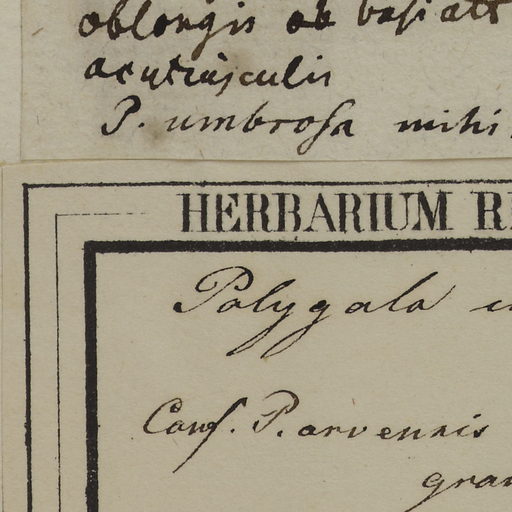 oblongis ob basi att
acutiusculis
P. umbrosa mihi.
HERBARIUM R
Polygala
Conf. P. arvensis
gran